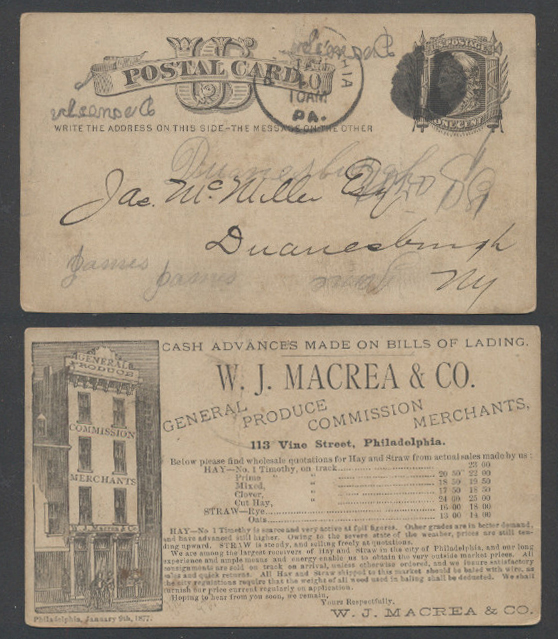 US
POSTAL CARD
WRITE THE ADDRESS ON THIS SIDE-THE MESSAGE ON THE OTHER
10AM
PA.
U.S. POSTAGE
ONE CENT
Jas. McMiller Esq
Duanesburgh
Duanesburgh
NY
James James
CASH ADVANCES MADE ON BILLS OF LADING.
W. J. MACREA & CO.
GENERAL PRODUCE COMMISSION MERCHANTS,
113 Vine Street, Philadelphia.
Below please find wholesale quotations for Hay and Straw from actual sales made by us:
HAY—No. 1 Timothy, on track 23 00
Prime " 20 50 22 00
Mixed, " 18 50 19 50
Clover, " 17 50 18 50
Cut Hay, " 24 00 25 00
STRAW—Rye 16 00 18 00
Oats 13 00 14 00
HAY—No 1 Timothy is scarce and very active at full figures. Other grades are in better demand,
and have advanced still higher. Owing to the severe state of the weather, prices are still ten-
ding upward. STRAW is steady, and selling freely at quotations.
We are among the largest receivers of Hay and Straw in the city of Philadelphia, and our long
experience and ample means and energy enable us to obtain the very outside market prices. All
consignments are sold on track on arrival, unless otherwise ordered, and we insure satisfactory
sales and quick returns. All Hay and Straw shipped to this market should be baled with wire, as
the hay regulations require that the weight of all wood used in baling shall be deducted. We shall
furnish for price current regularly on application.
Hoping to hear from you soon, we remain,
Yours Respectfully,
W. J. MACREA & CO.
GENERAL
PRODUCE
COMMISSION
MERCHANTS
W. J. Macrea & Co
Philadelphia, January 9th, 1877.